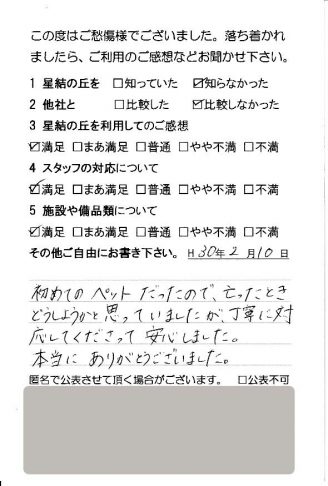 この度はご愁傷様でございました。落ち着かれ
ましたら、ご利用のご感想などお聞かせ下さい。
1 星結の丘を □知っていた ☑知らなかった
2 他社と □比較した ☑比較しなかった
3 星結の丘を利用してのご感想
☑満足 □まあ満足 □普通 □やや不満 □不満
4 スタッフの対応について
☑満足 □まあ満足 □普通 □やや不満 □不満
5 施設や備品類について
☑満足 □まあ満足 □普通 □やや不満 □不満
その他ご自由にお書き下さい。 H30年2月10日
初めてのペットだったので、亡ったとき
どうしようかと思っていましたが、丁寧に対
応してくださって安心しました。
本当にありがとうございました。
匿名で公表させて頂く場合がございます。 □公表不可